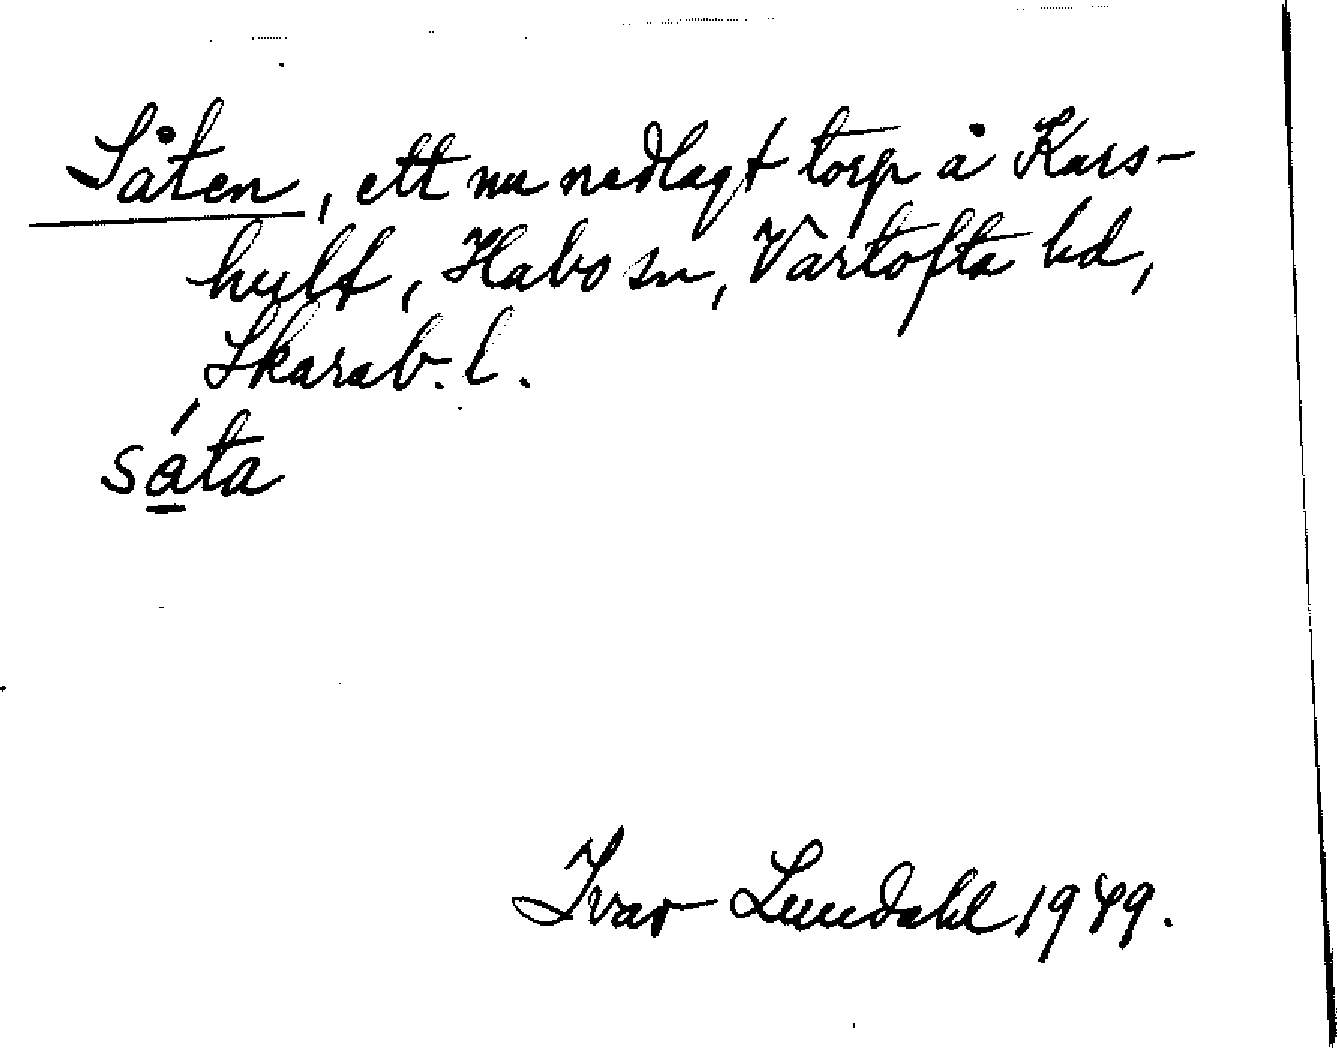 Såten, ett nu nedlagt torp å Kars-
hult, Habo sn, Vartofta hd,
Skarab. l.
sáta
Ivar Lundahl 1949.